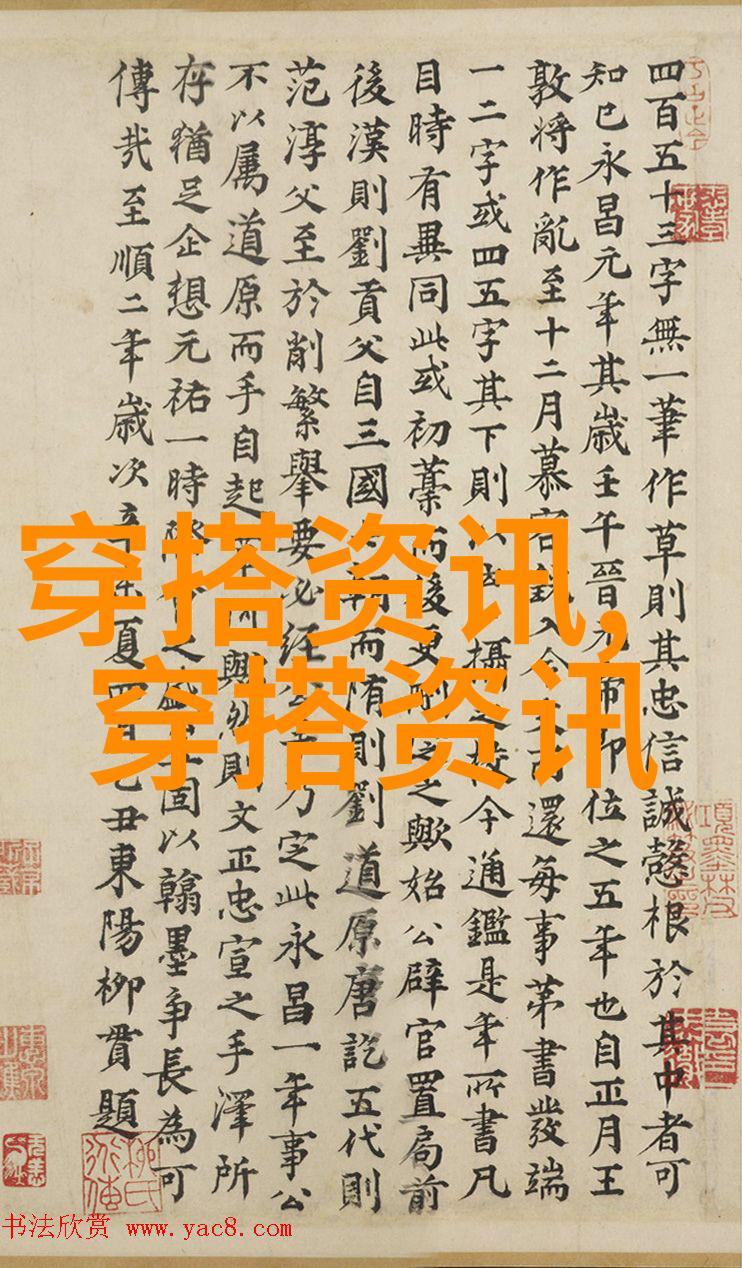 四百五十三字無一筆作草則其忠信誠慤根於其中者可
知已永昌元年其歲壬午晉元帝即位之五年也自正月王
敦將作亂至十二月慕容入令還每事第書發端
一二字或四五字其下則以攝之校今通鑑是年所書凡
目時有異同此或初藁而後更之歟始公辟官置局前
後漢則劉貢父自三國而隋則劉道原唐訖五代則
范淳父至於削繁舉要必經公手乃定此永昌一年事公
不以屬道原而手自起草何歟然則文正忠宣之手澤所
存猶足企想元祐一時之盛固以翰墨爭長為可
傳哉至順二年歲次辛未夏四月己丑東陽柳貫題
柳氏
穿搭资讯,
穿搭资讯
书法欣赏 www.yac8.com